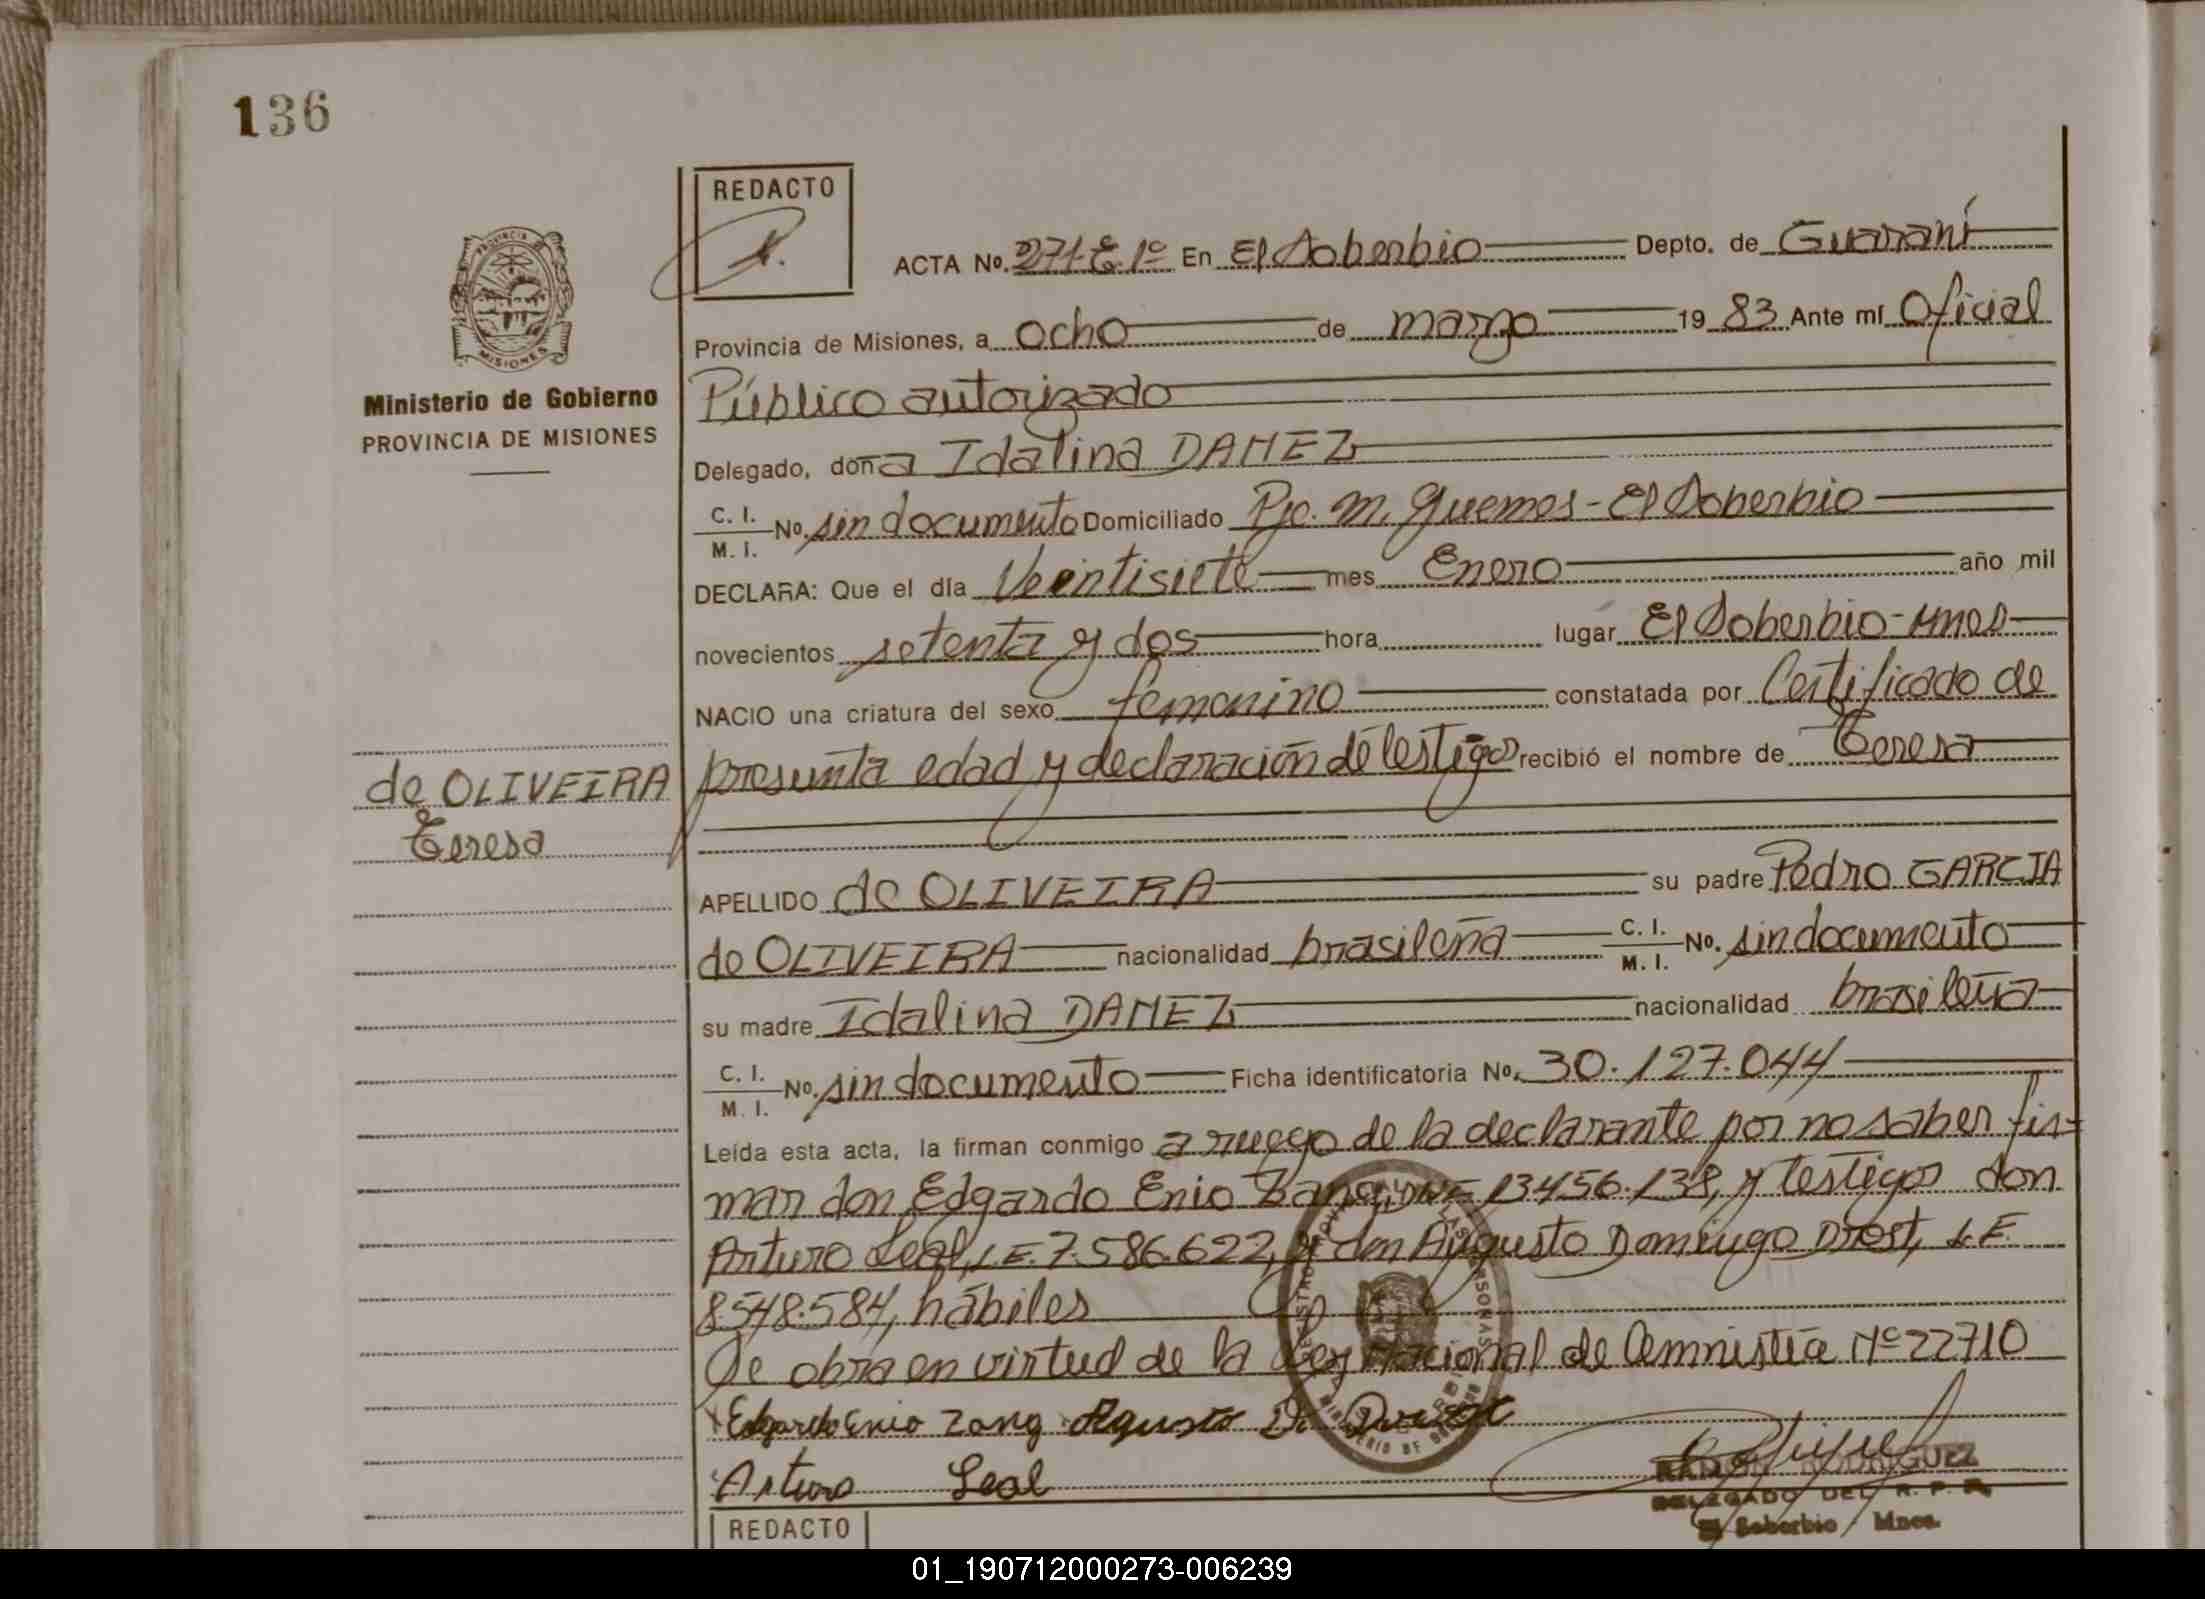 136
REDACTO
PROVINCIA
MISIONES
Ministerio de Gobierno
PROVINCIA DE MISIONES
ACTA No. 271-E.1º En El Soberbio Depto. de Guaraní
Provincia de Misiones, a ocho de marzo 19 83 Ante mí Oficial
Público autorizado
Delegado, doña Idalina DAMEZ
C. I. / M. I. No. sin documento Domiciliado Pje. M. Guemes - El Soberbio
DECLARA: Que el día Veintisiete mes Enero año mil
novecientos setenta y dos hora lugar El Soberbio - Mnes
NACIO una criatura del sexo femenino constatada por Certificado de
presunta edad y declaración de testigos recibió el nombre de Teresa
de OLIVEIRA
Teresa
APELLIDO de OLIVEIRA su padre Pedro GARCIA
de OLIVEIRA nacionalidad brasileña C. I. / M. I. No. sin documento
su madre Idalina DAMEZ nacionalidad brasileña
C. I. / M. I. No. sin documento Ficha identificatoria No. 30.127.044
Leída esta acta, la firman conmigo a ruego de la declarante por no saber fir-
mar don Edgardo Enio Zang, DNI 13456.138, y testigos don
Arturo Leal, L.E. 7.586.622, y don Augusto Domingo Drest, L.E.
8.548.584, hábiles
Se obra en virtud de la Ley Nacional de Amnistía Nº 22710
Edgardo Enio Zang Agusto D.
Arturo Leal
RAMON RODRIGUEZ
DELEGADO DEL R. P. P.
El Soberbio / Mnes.
REDACTO
01_190712000273-006239